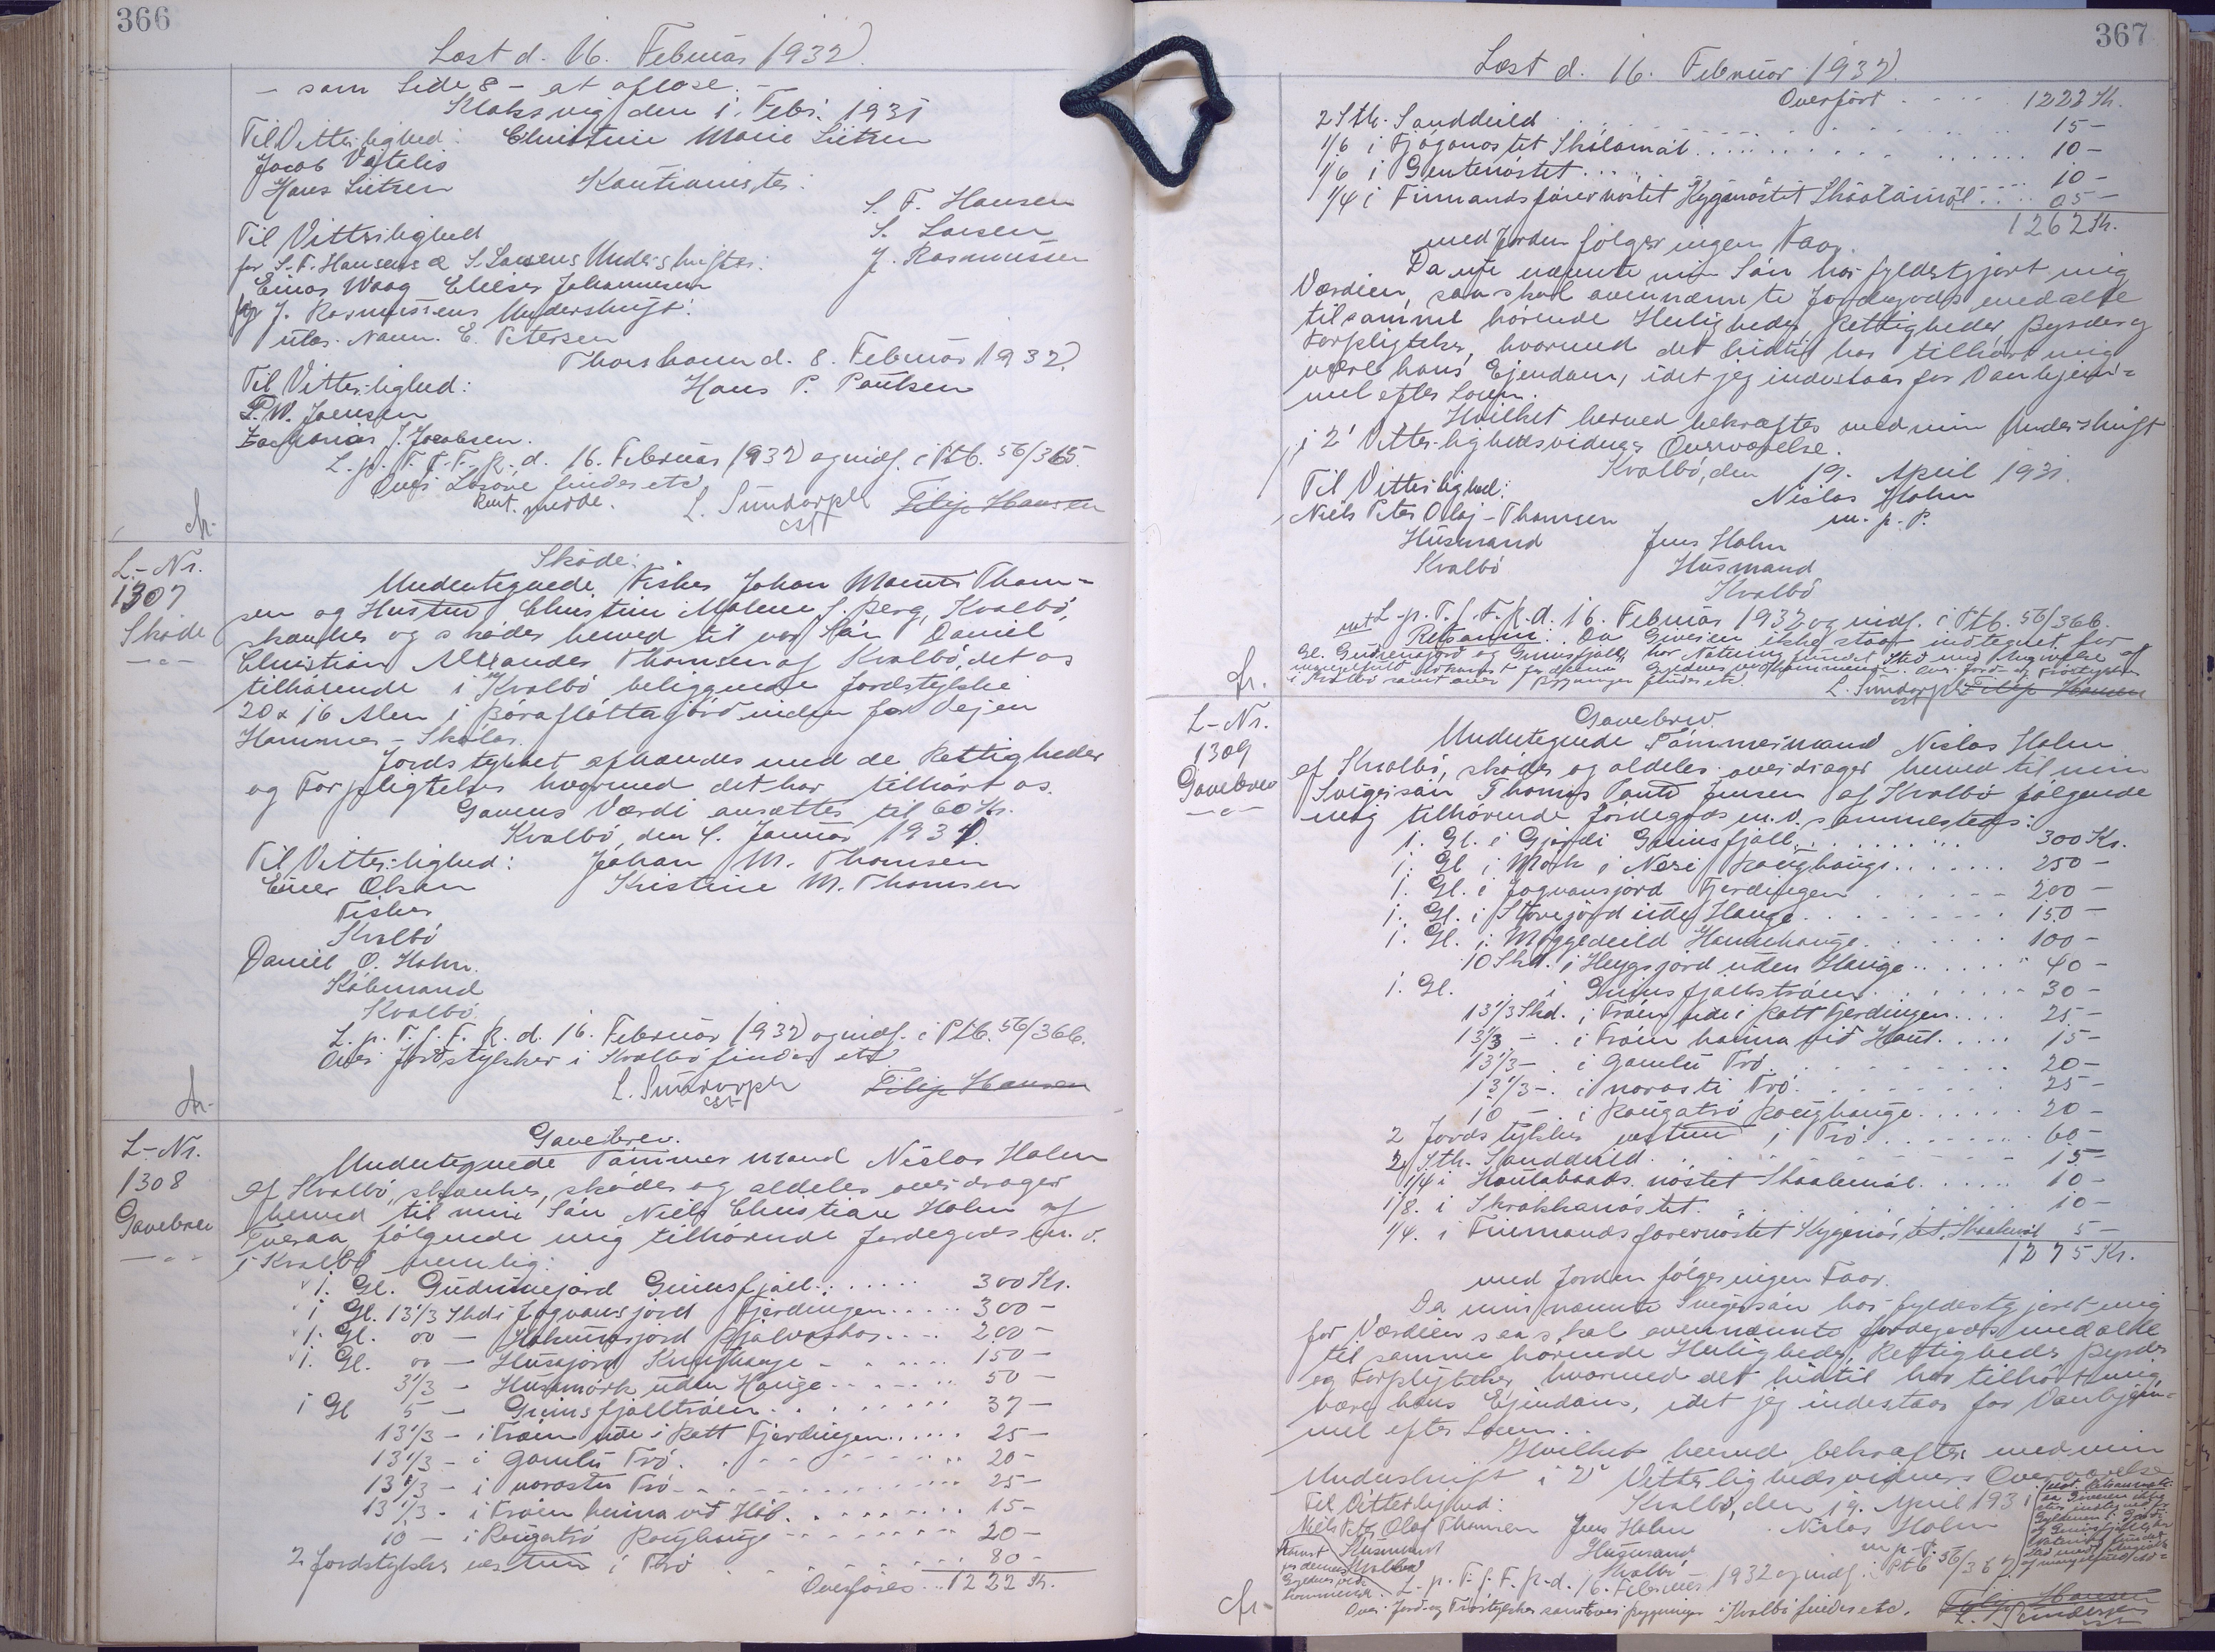 366
Læst d. 16. Februar 1932.
- som Side 8 - at aflæse. -
Klaksvig den 1. Febr. 1931
Til Vitterlighed: Christine Marie Lützen
Jacob
Hans Lützen Kautionister:
S. F. Hansen
Til Vitterlighed S. Larsen
for S. F. Hansens & S. Larsens Underskrifter: J. Rasmussen
Einar Waag Elieser Johannesen
for J. Rasmussens Underskrift:
E. Petersen
Thorshavn d. 8. Februar 1932.
Til Vitterlighed: Hans P. Poulsen
P.W. Joensen
Zacharias J. Jacobsen.
L. p. T. f. F. R. d. 16. Februar 1932 og indf. i Ptb. 56/365.
Over Løsøre findes etc
L. Sundorph Filip Hansen
cst
L.-Nr.
1307
Skøde
Skøde:
Undertegnede Fisker Johan Thom-
sen og Hustru Christine Malene f. Berg, Kvalbø,
skænker og skøder herved til vor Søn Daniel
Christian Alexander Thomsen af Kvalbø, det os
tilhørende i Kvalbø beliggende Jordstykke
20 x 16 Alen i nedenfor Vejen
Hammer - Skolas.
Jordstykket afhændes med de Rettigheder
og Forpligtelser hvormed det har tilhørt os.
Gavens Værdi ansættes til 60 Kr.
Kvalbø, den 4. Januar 1931.
Til Vitterlighed: Johan M. Thomsen
Olsen Kristine M. Thomsen
Fisker
Kvalbø
Daniel O. Holm.
Købmand
Kvalbø.
L. p. T. f. F. R. d. 16. Februar 1932 og indf. i Ptb. 56/366.
Over Jordstykker i Kvalbø findes etc
L. Sundorph Filip Hansen
cst
L.-Nr.
1308
Gavebrev
Gavebrev.
Undertegnede Tømmermand Niclas Holm
af Kvalbø, skænker, skøder og aldeles overdrager
herved til min Søn Niels Christian Holm af
Tveraa følgende mig tilhørende Jordegods m. v.
i Kvalbø nemlig:
1. Gl. Gudrunejørd Grimsfjall 300 Kr.
1 Gl. 13 1/3 Skd i Jogvansjørd Fjerdingen 300 -
1. Gl. 00 - 200 -
1. Gl. 00 - Husajørd 150 -
3 1/3 - Husamørk uden Hauge 50 -
1 Gl 5 - Grimsfjalltrøen 37 -
13 1/3 - i Trøen ude i Kott Fjerdingen 25 -
13 1/3 - i Gamlu Trø 20 -
13 1/3 - i norastu Trø 25 -
13 1/3 - i Trøen heima vid Hób. 15 -
10 - i Rougatrø Roughauge 20 -
2 Jordstykker vestur i Trø 80 -
Overføres 1222 Kr.
367
Læst d. 16. Februar 1932.
Overført 1222 Kr.
2 Stk. Sanddeild 15 -
1/6 i Skálamál 10 -
1/6 i Gentenøstet 10 -
1/4 i Finmandsfarernøstet Hyganøstet Skaalamál 05 -
1262 Kr.
med Jorden følger ingen Faar.
Da nu nævnte min Søn har fyldestgjort mig
Værdien, saa skal ovennævnte Jordegods med alle
tilsamme hørende Herligheder, Rettigheder, Byrder og
Forpligtelser, hvormed det hidtil har tilhørt mig
være hans Ejendom, idet jeg indestaar for Vanhjem-
mel efter Loven.
Hvilket herved bekræftes med min Underskrift
i 2 Vitterlighedsvidners Overværelse.
Kvalbø, den 19. April 1931.
Til Vitterlighed: Niclas Holm
Niels Peter Olaj - Thomsen m. p. P.
Husmand Jens Holm
Kvalbø Husmand
Kvalbø
L. p. T. f. F. R. d. 16. Februar 1932 og indf. i Ptb. 56/366.
Retsanm: Da Giveren ikke staar indtegnet for
Gl. Gudrunejørd og Grimsfjall har Notering fundet Sted med Angivelse af
i Kvalbø samt over Bygninger findes etc.
L. Sundorph Filip Hansen
cst
L.-Nr.
1309
Gavebrev
Gavebrev.
Undertegnede Tømmermand Niclas Holm
af Kvalbø, skøder og aldeles overdrager herved til min
Svigersøn Thomas Jensen af Kvalbø følgende
mig tilhørende Jordegods m. v. sammesteds:
1. Gl. i Gjørdi Grimsfjall 300 Kr.
1. Gl. i Mørk i Nesi Roughauge 250 -
1. Gl. i Jogvansjord Fjerdingen 200 -
1. Gl. i Storejørd ude Hauge 150 -
1. Gl. i Møggedeild Hamhauge 100 -
10 Skd. i Heygsjord uden Hauge 40 -
1. Gl. i Grimsfjallstrøen 30 -
13 1/3 Skd. i Trøen ude i Kott Fjerdingen 25 -
13 1/3 - i Trøen heima vid Hóul. 15 -
13 1/3 - i Gamlu Trø 20 -
13 1/3 - i norasti Trø 25 -
10 - i Rougatrø Roughauge 20 -
2 Jordstykker vestur i Trø 60 -
2 Stk. Sanddeild 15 -
1/4 i nøstet Skaalemál 10 -
1/8. i Skrokkanøstet 10 -
1/4. i Finmandsfarernøstet Hyggenøstet, Skaalemál 5 -
1275 Kr.
med Jorden følger ingen Faar.
Da min nævnte Svigersøn har fyldestgjoret mig
for Værdien saa skal ovennævnte Jordegods med alle
til samme hørende Herligheder, Rettigheder, Byrder
og Forpligtelser, hvormed det hidtil har tilhørt mig
være hans Ejendom, idet jeg indestaar for Vanhjem-
mel efter Loven.
Hvilket herved bekræftes med min
Underskrift i 2 Vitterlighedsvidners Overværelse
Til Vitterlighed: Kvalbø, den 19. April 1931
Niels Peter Olaf Thomsen Jens Holm Niclas Holm
Husmand Husmand m. p. P.
Kvalbø Kvalbø
L. p. T. f. F. R. d. 16. Februar 1932 og indf. i Ptb 56/367.
Over Jord- og Trøstykker samt over Bygninger i Kvalbø findes etc.
Filip Hansen